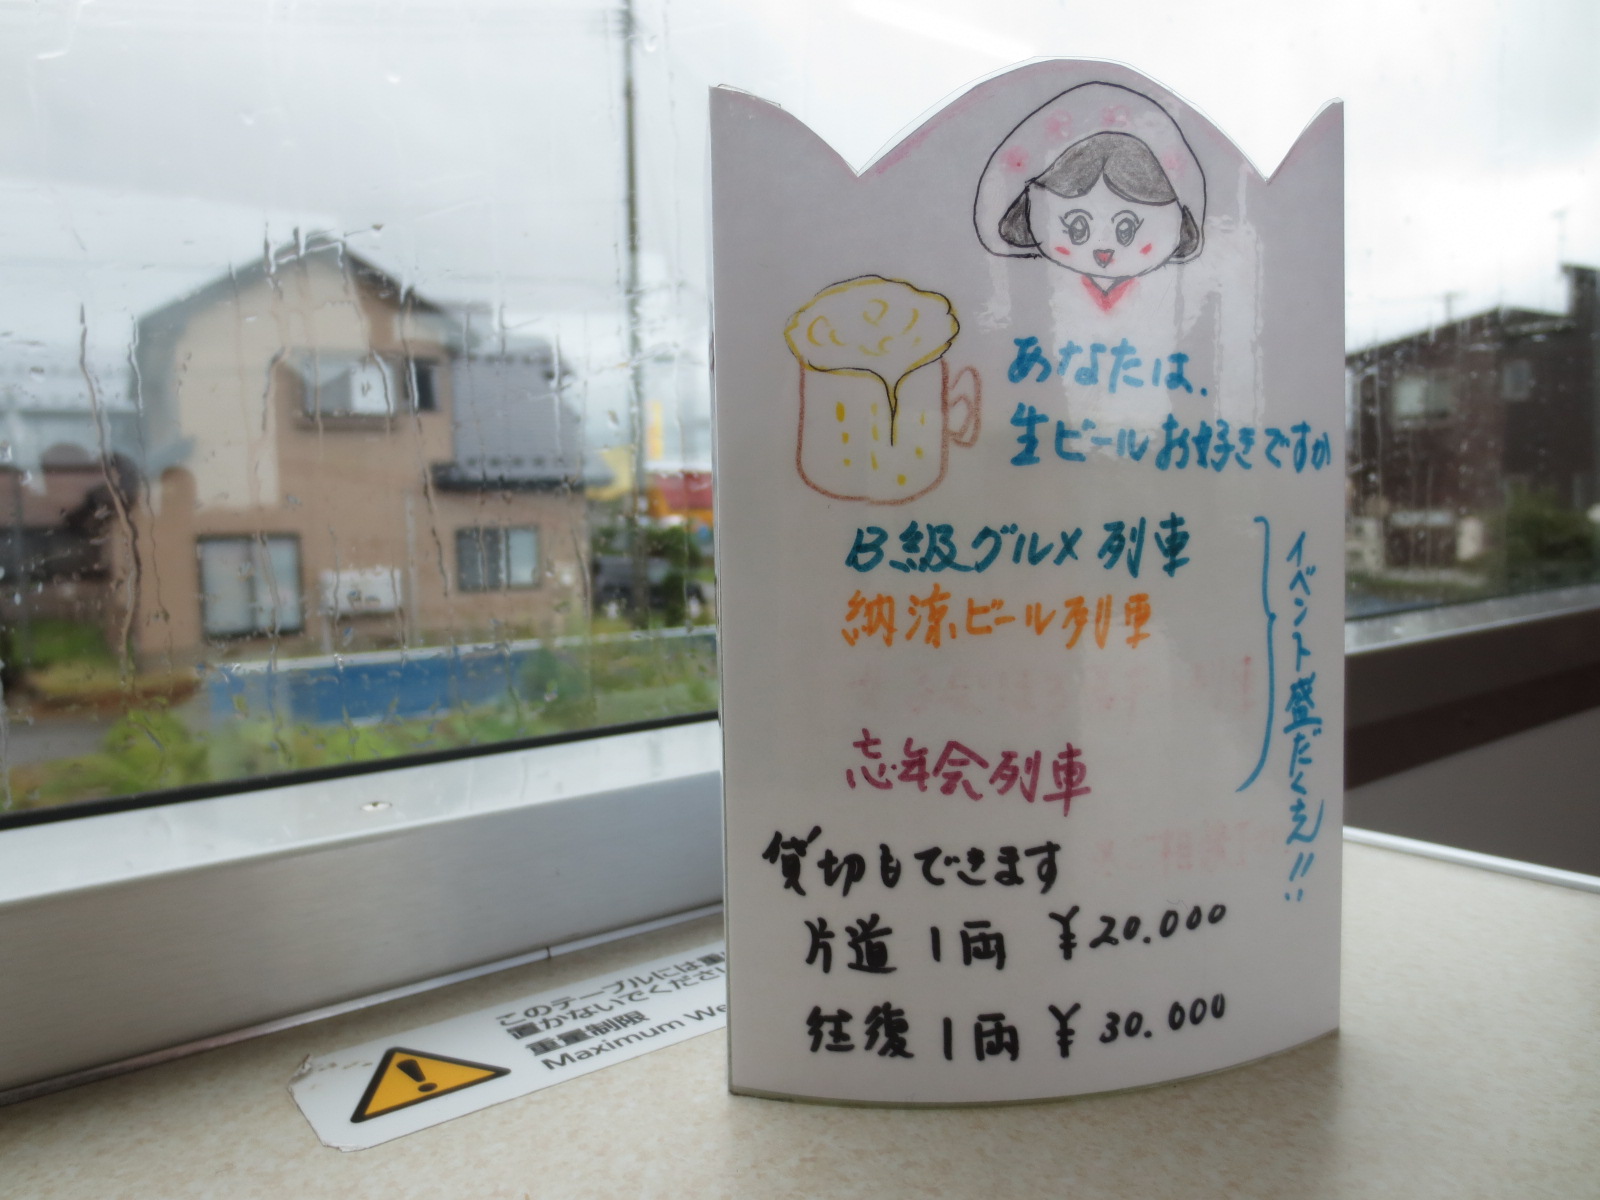 あなたは、
生ビールお好きですか
B級グルメ列車
納涼ビール列車
忘年会列車
イベント盛だくさん!!
貸切もできます
片道 1両 ¥20.000
往復 1両 ¥30.000
このテーブルには重
置かないでくださ
重量制限
Maximum We